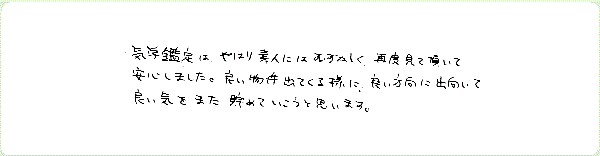 気学鑑定は、やはり素人にはむずかしく、再度見て頂いて
安心しました。良い物件出てくる様に、良い方向に出向いて
良い気をまた貯めていこうと思います。